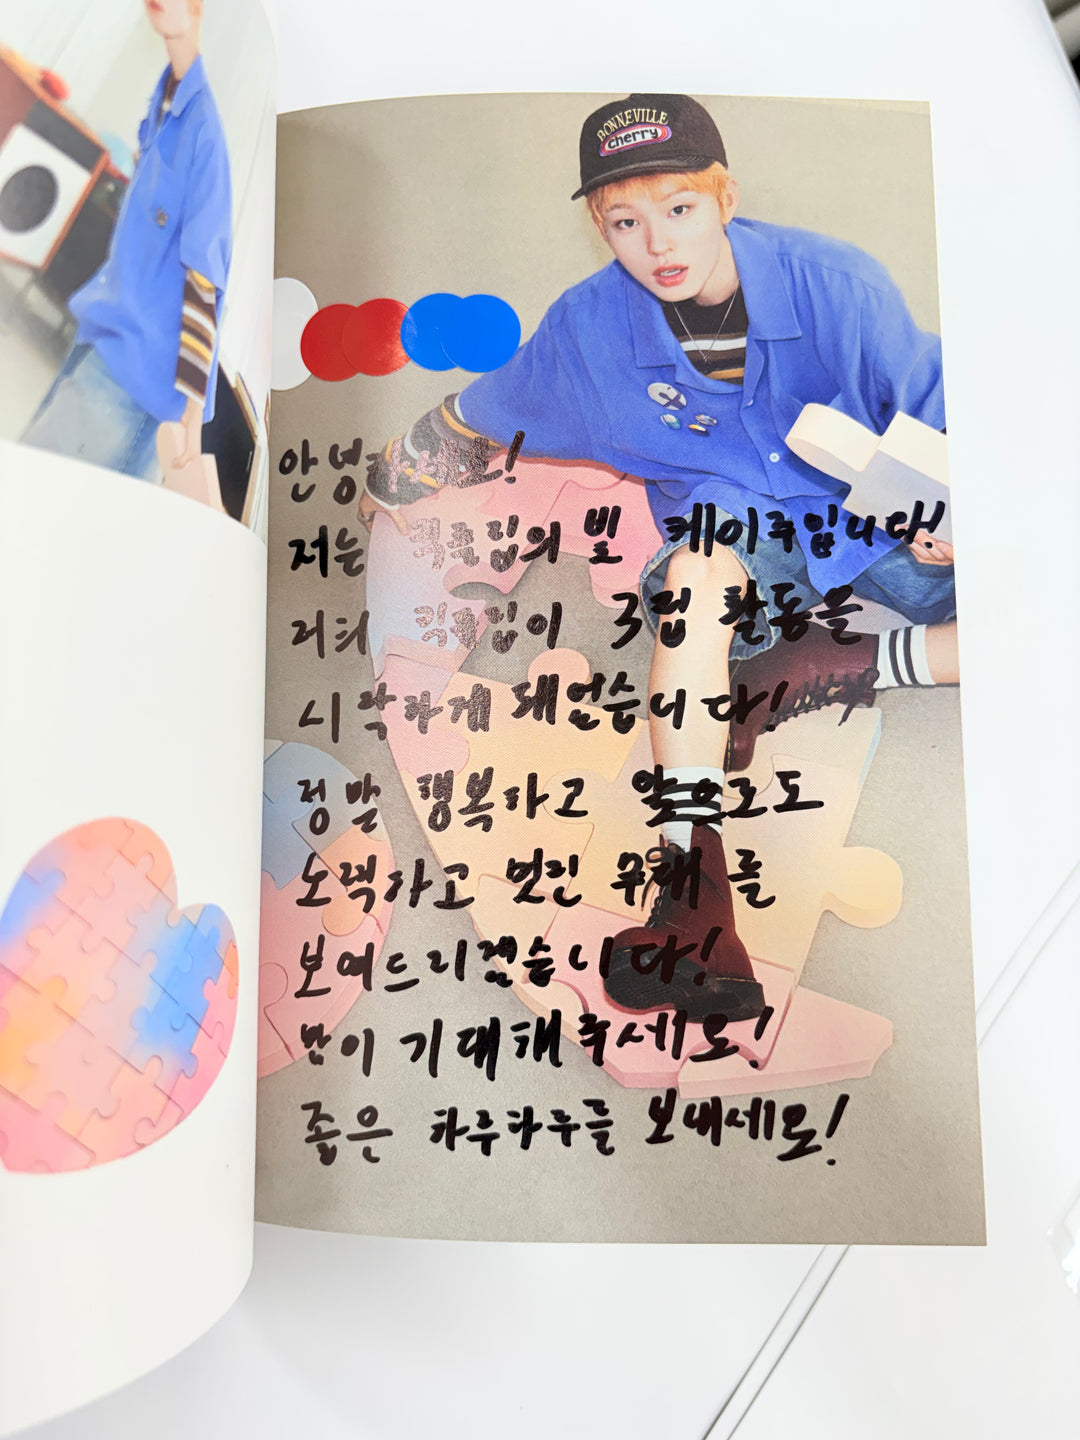 BONNEVILLE
cherry
안녕하세요!
저는 킥플립의 빛 케이주입니다!
저희 킥플립이 3컴 활동을
시작하게 돼었습니다!
정말 행복하고 앞으로도
노력하고 멋진 무대를
보여드리겠습니다!
많이 기대해주세요!
좋은 하루하루를 보내세요!